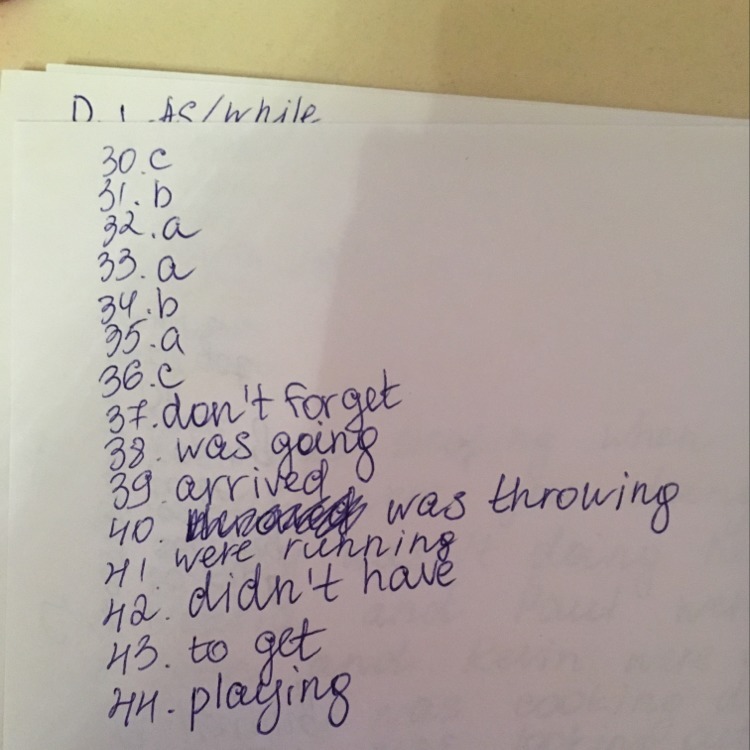 D. 1. As/while
30. c
31. b
32. a
33. a
34. b
35. a
36. c
37. don't forget
38. was going
39. arrived
40. was throwing
41. were running
42. didn't have
43. to get
44. playing